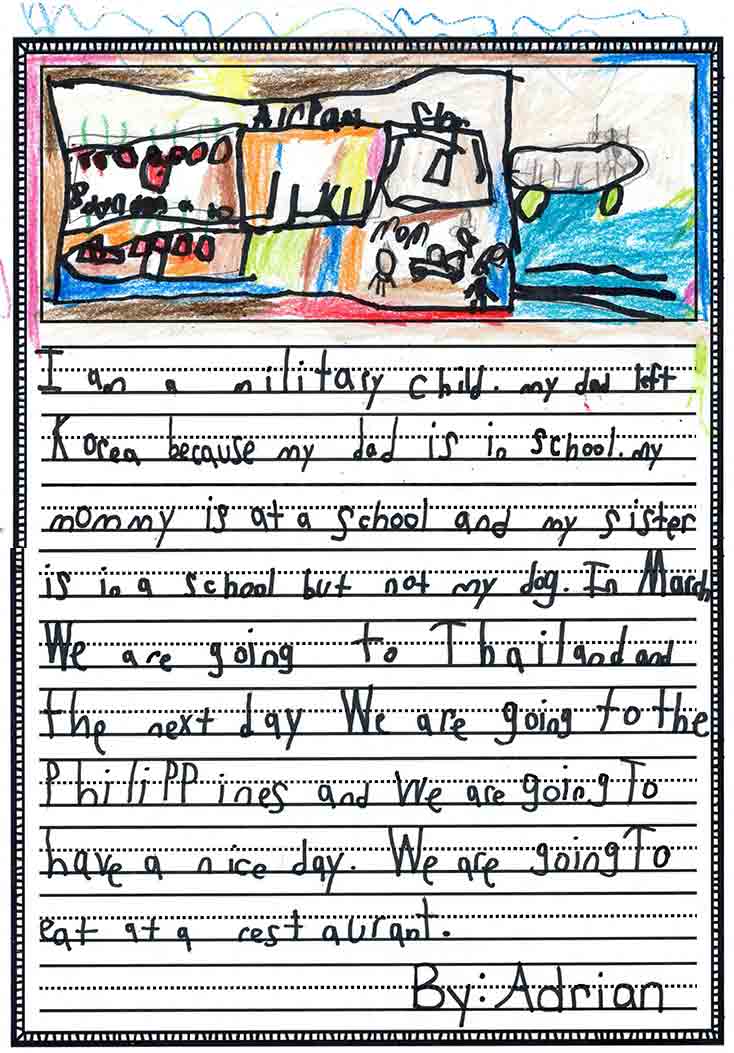 AirPlan
mom
I am a military child. my dad left
Korea because my dad is in school. my
mommy is at a school and my sister
is in a school but not my dog. In March
We are going to Thailand and
the next day We are going to the
PhiliPPines and We are going To
have a nice day. We are going To
eat at a restaurant.
By: Adrian